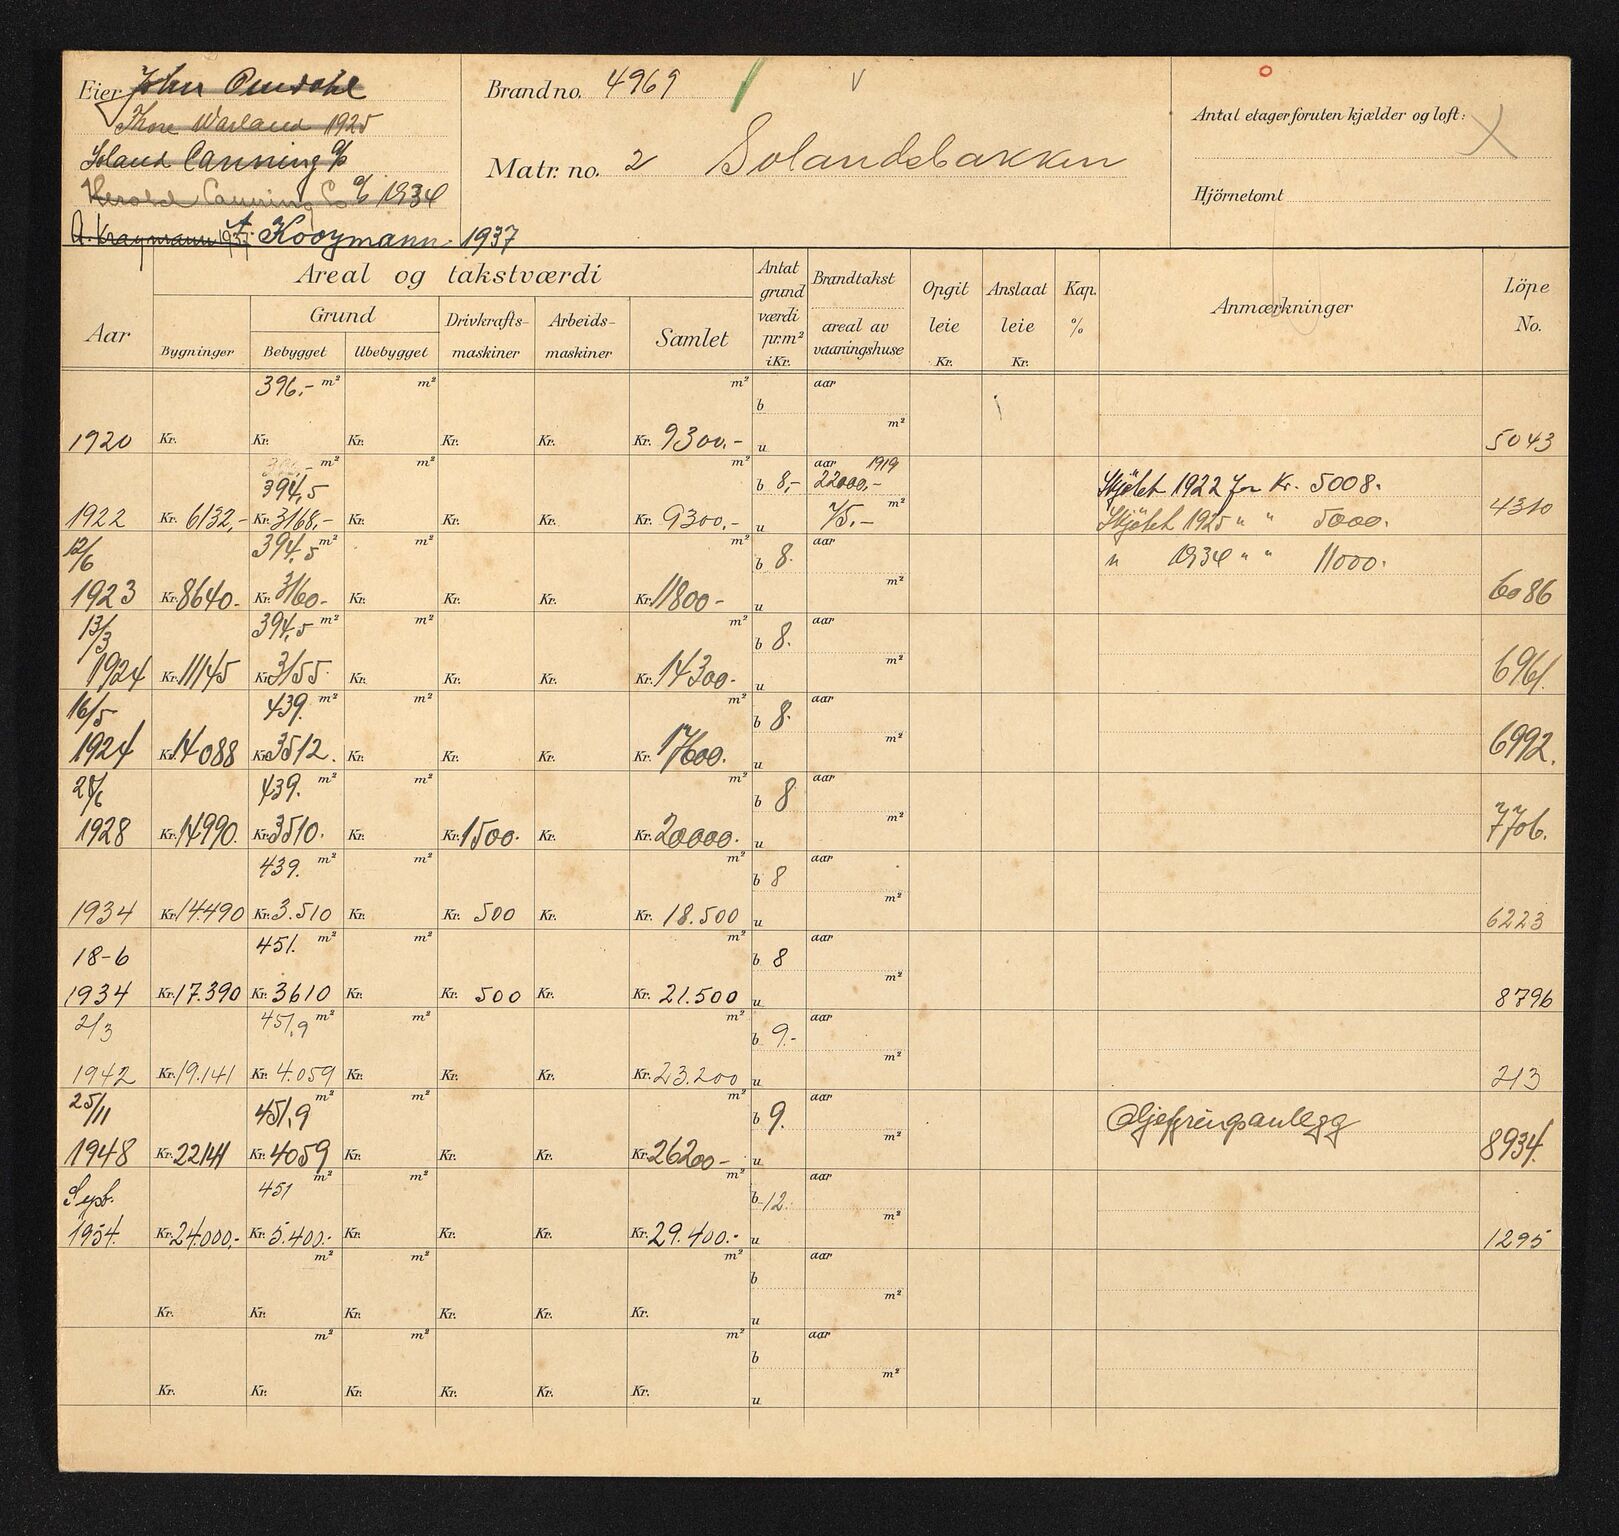 Eier John Omdahl
Thore Warland 1925
Soland Canning A/S
Herold Canning Co A/S 1934
A. Kraymann 1937 A Kooymann 1937
Brand no. 4969
Matr. no. 2 Solandsbakken
Antal etager foruten kjælder og loft:
Hjörnetomt
Aar
Areal og takstværdi
Grund
Bygninger Bebygget Ubebygget
Drivkrafts-
maskiner
Arbeids-
maskiner
Samlet
Antat
grund
værdi
pr.m²
i Kr.
Brandtakst
areal av
vaaningshuse
Opgit
leie
Kr.
Anslaat
leie
Kr.
Kap.
%
Anmærkninger
Löpe
No.
396,- m² m² m² aar
b
m²
1920 Kr. Kr. Kr. Kr. Kr. Kr. 9300,- u 5043
m² m² m² aar 1919
394,5 b 8,- 22000,- Skjötet 1922 for Kr. 5008.
m²
1922 Kr. 6132,- Kr. 3168,- Kr. Kr. Kr. Kr. 9300,- u 75,- Skjötet 1925 " " 5000. 4310
12/6 394,5 m² m² m² b 8. aar " 1934 " " 11000.
m²
1923 Kr. 8640.- Kr. 3160- Kr. Kr. Kr. Kr. 11800- u 6086
13/3 394,5 m² m² m² b 8. aar
m²
1924 Kr. 11145 Kr. 3155. Kr. Kr. Kr. Kr. 14300.- u 6961.
16/5 439. m² m² m² b 8. aar
m²
1924 Kr. 14088 Kr. 3512. Kr. Kr. Kr. Kr. 17600. u 6992.
28/6 439. m² m² m² b 8 aar
m²
1928 Kr. 14990. Kr. 3510. Kr. Kr. 1500. Kr. Kr. 20000. u 7706.
439. m² m² m² b 8 aar
m²
1934 Kr. 14.490 Kr. 3.510 Kr. Kr. 500 Kr. Kr. 18.500 u 6223
18-6 451. m² m² m² b 8 aar
m²
1934 Kr. 17.390 Kr. 3610 Kr. Kr. 500 Kr. Kr. 21.500 u 8796
2/3 451,9 m² m² m² b 9.- aar
m²
1942 Kr. 19.141 Kr. 4.059 Kr. Kr. Kr. Kr. 23.200 u 213
25/11 451,9 m² m² m² b 9. aar Oljefyringsanlegg
m²
1948 Kr. 22141 Kr. 4059 Kr. Kr. Kr. Kr. 26200- u 8934.
Sept. 451 m² m² m² b 12. aar
m²
1954. Kr. 24.000,- Kr. 5.400.- Kr. Kr. Kr. Kr. 29.400.- u 1295
m² m² m² b aar
m²
Kr. Kr. Kr. Kr. Kr. Kr. u
m² m² m² b aar
m²
Kr. Kr. Kr. Kr. Kr. Kr. u